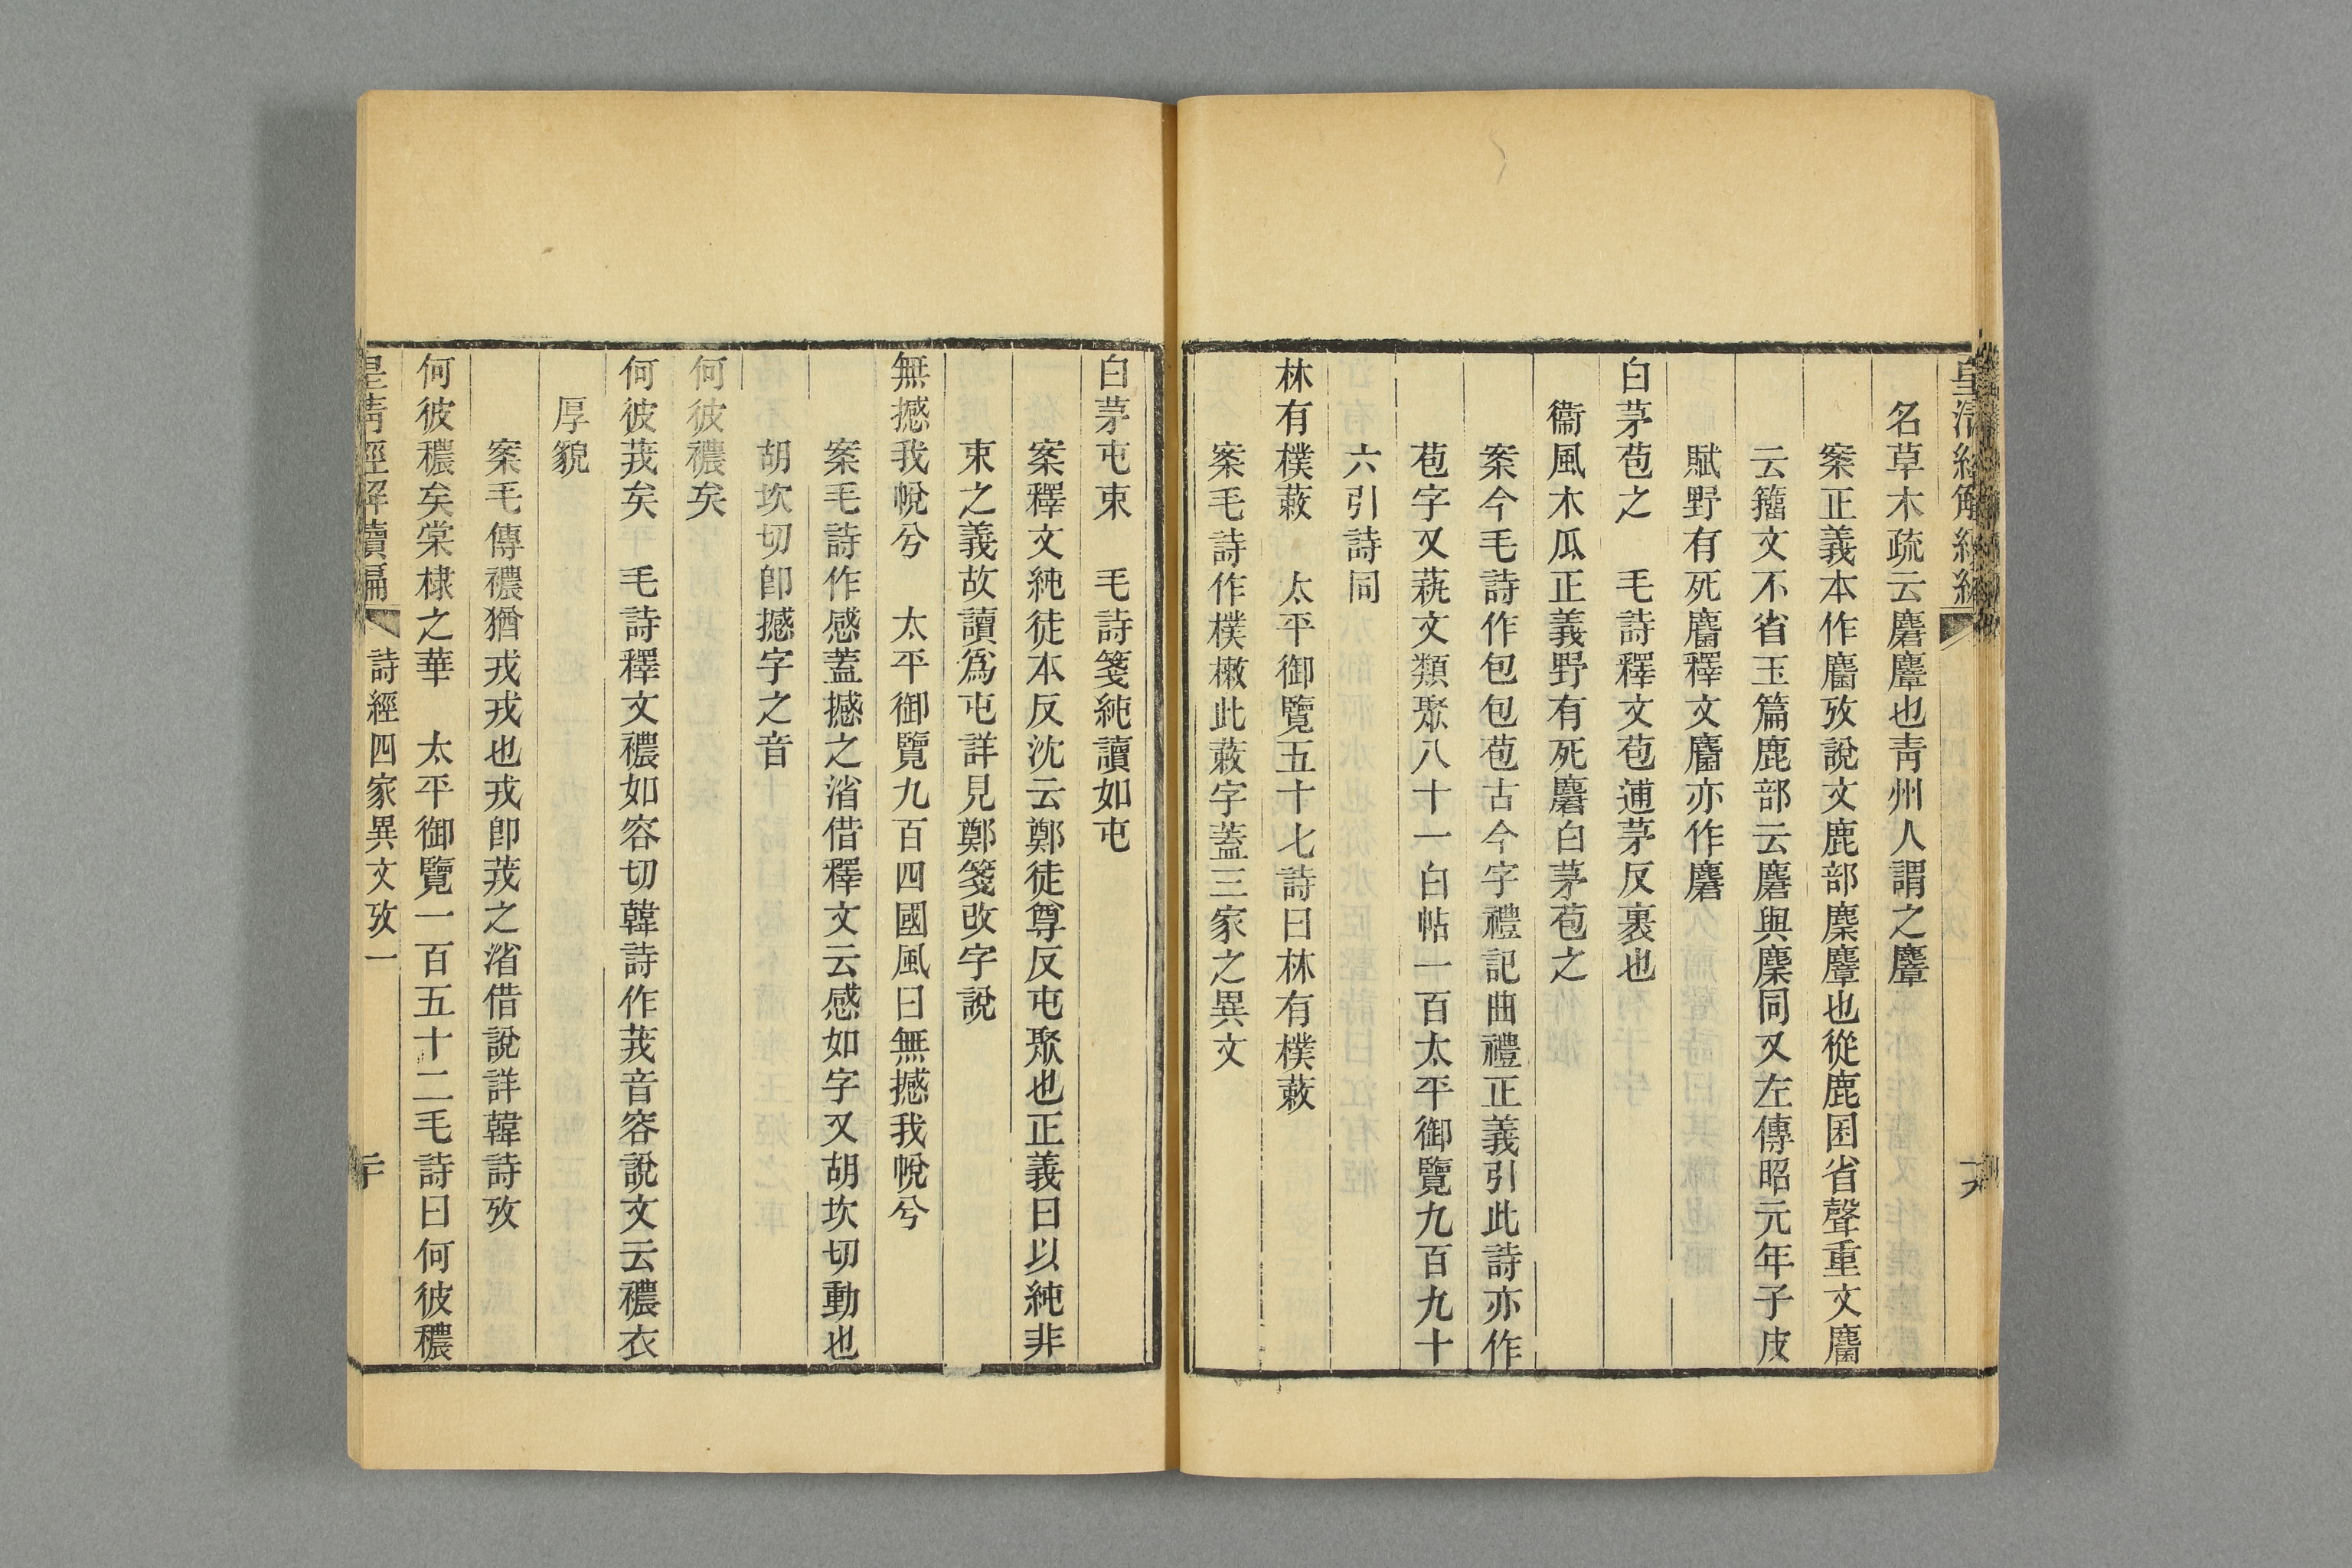 皇清經解續編
名草木疏云麏麞也靑州人謂之麞
案正義本作麕攷說文鹿部麇麞也從鹿囷省聲重文麕
云籒文不省玉篇鹿部云麏與麇同又左傳昭元年子皮
賦野有死麕釋文麕亦作麏
白茅苞之　毛詩釋文苞逋茅反裹也
衞風木瓜正義野有死麏白茅苞之
案今毛詩作包包苞古今字禮記曲禮正義引此詩亦作
苞字又蓺文類聚八十一白帖一百太平御覽九百九十
六引詩同
林有樸蔌　太平御覽五十七詩曰林有樸蔌
案毛詩作樸樕此蔌字蓋三家之異文
白茅屯束　毛詩箋純讀如屯
案釋文純徒本反沈云鄭徒尊反屯聚也正義曰以純非
束之義故讀爲屯詳見鄭箋改字說
無撼我帨兮　太平御覽九百四國風曰無撼我帨兮
案毛詩作感蓋撼之渻借釋文云感如字又胡坎切動也
胡坎切卽撼字之音
何彼襛矣
何彼茙矣　毛詩釋文襛如容切韓詩作茙音容說文云襛衣
厚貌
案毛傳襛猶戎戎也戎卽茙之渻借說詳韓詩攷
何彼穠矣棠棣之華　太平御覽一百五十二毛詩曰何彼穠
皇淸經解續編　詩經四家異文攷一